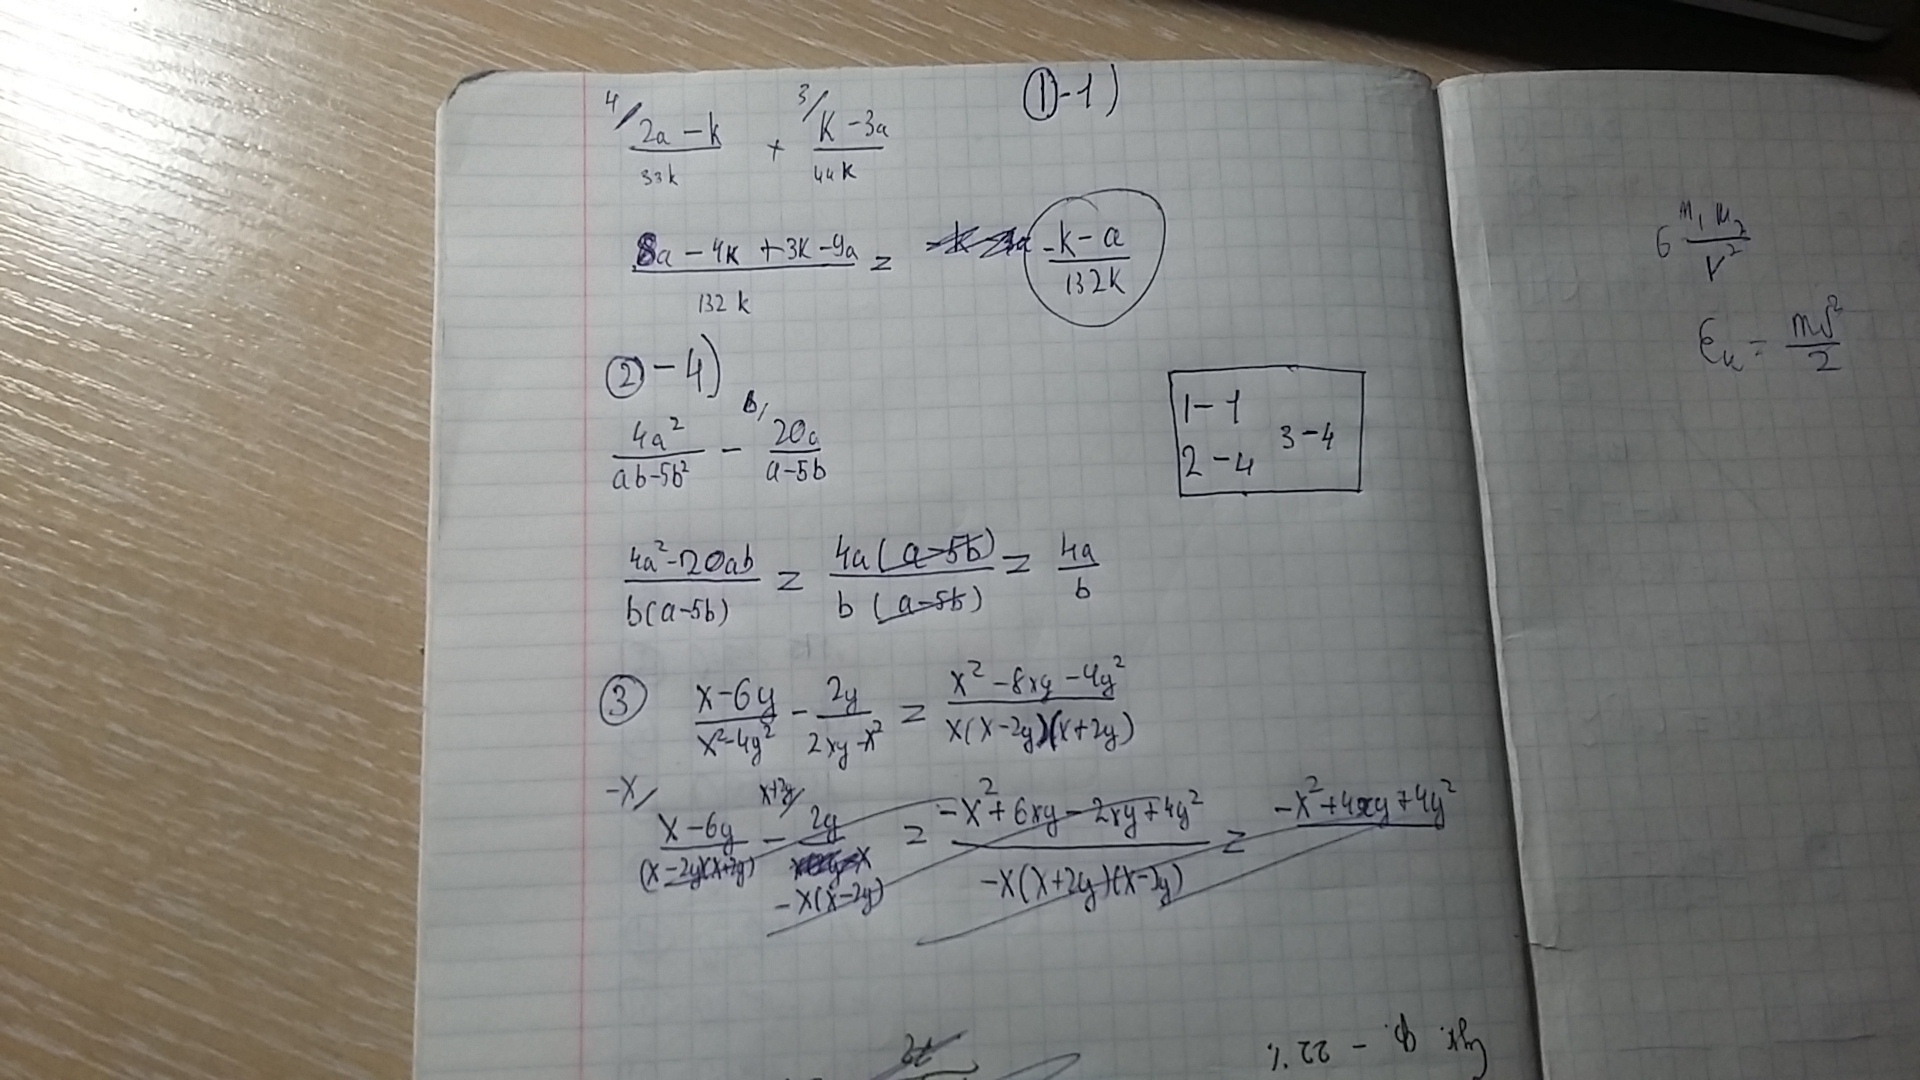 ①-1)
4/ (2a - k)/33k + 3/ (k - 3a)/44k
(8a - 4k + 3k - 9a)/132k = (-k - a)/132k
②-4)
4a²/(ab-5b²) - b/ 20a/(a-5b)
1-1
2-4
3-4
(4a²-20ab)/(b(a-5b)) = 4a(a-5b)/(b(a-5b)) = 4a/b
③ (x-6y)/(x²-4y²) - 2y/(2xy-x²) = (x²-8xy-4y²)/(x(x-2y)(x+2y))
-x/ (x-6y)/((x-2y)(x+2y)) - x+2y/ 2y/(-x(x-2y)) = (-x²+6xy-2xy+4y²)/(-x(x+2y)(x-2y)) = -x²+4xy+4y²
G m₁m₂/r²
Eк = mv²/2
- 22%